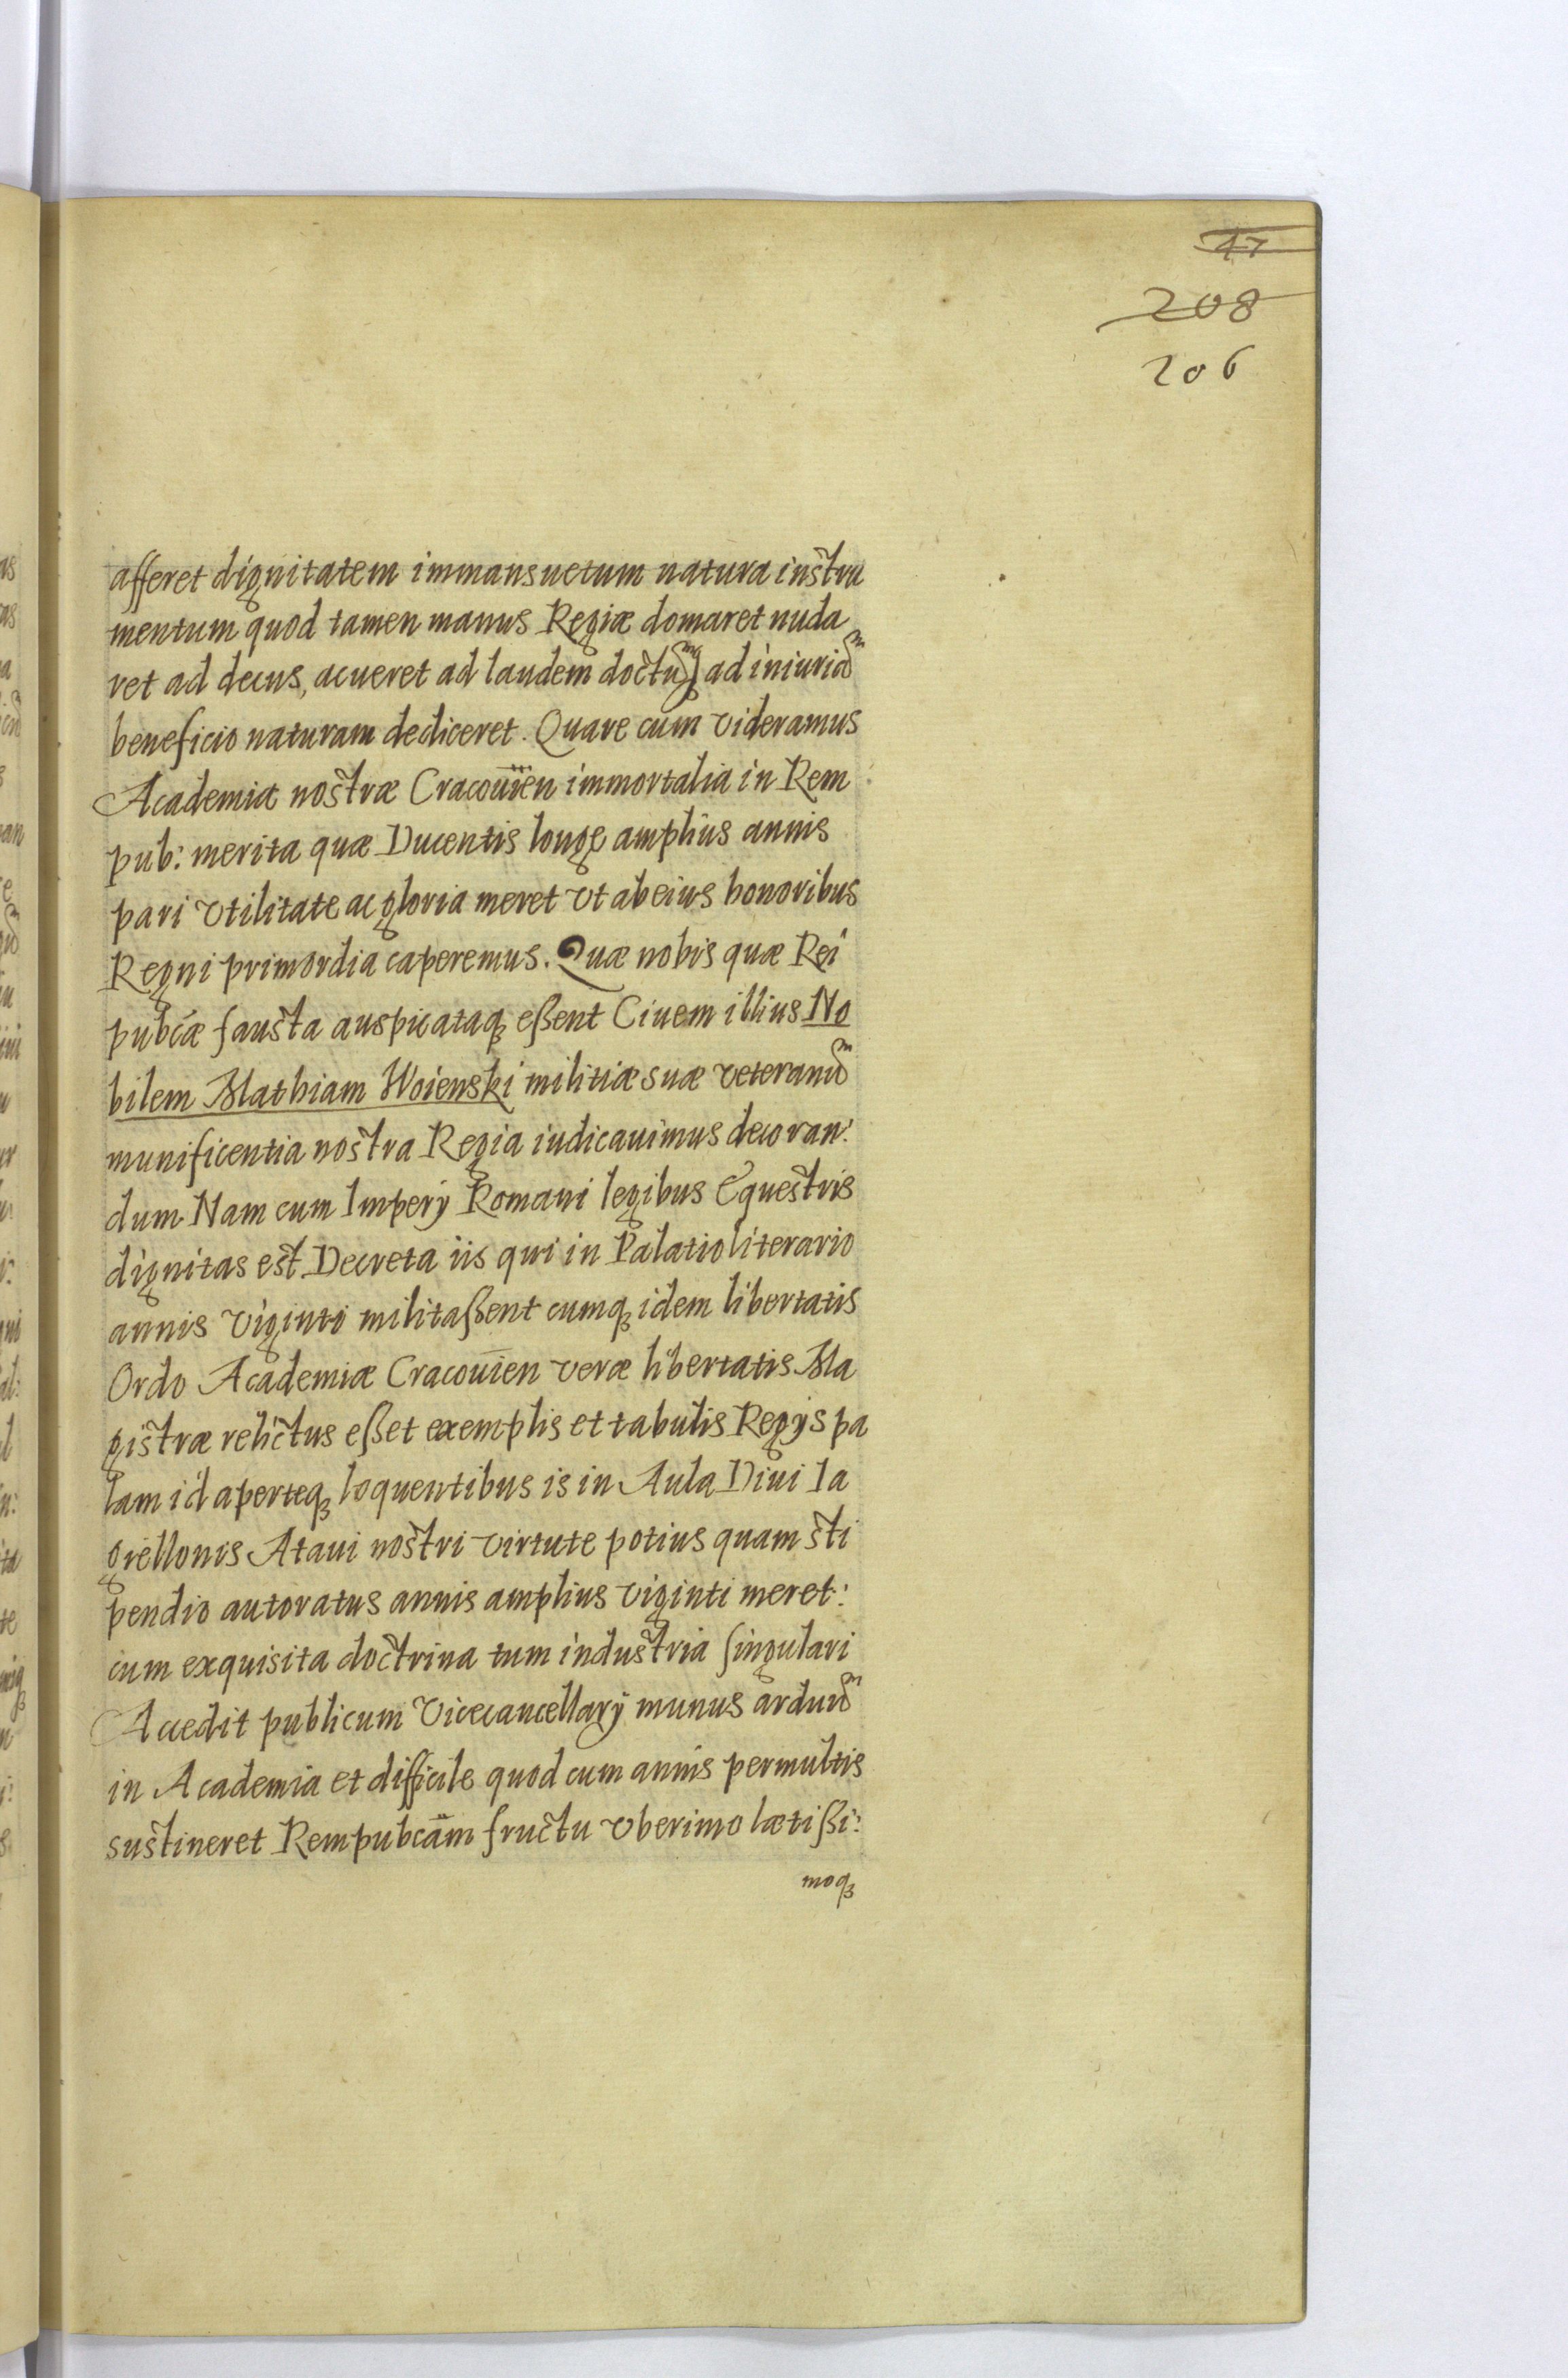 17
208
206
afferet dignitatem immansuetum natura instru
mentum quod tamen manus Regiæ domaret nuda
ret ad decus, acueret ad laudem doctum ad iniuriam
beneficio naturam dediceret. Quare cum videramus
Academiæ nostræ Cracouien immortalia in Rem
pub: merita quæ Ducentis longe amplius annis
pari vtilitate ac gloria meret vt ab eius honoribus
Regni primordia caperemus. Quæ nobis quæ Rei
pubcæ fausta auspicataq eßent Ciuem illius No
bilem Mathiam Woienski militiæ suæ veteranum
munificentia nostra Regia iudicauimus decoran:
dum. Nam cum Imperÿ Romani legibus Equestris
dignitas est Decreta iis qui in Palatio literario
annis viginti militaßent cumq idem libertatis
Ordo Academiæ Cracouien veræ libertatis Ma
gistræ relictus eßet exemplis et tabulis Regÿs pa
lam id aperteq loquentibus is in Aula Diui Ia
giellonis Ataui nostri virtute potius quam sti
pendio autoratus annis amplius viginti meret:
cum exquisita doctrina tum industria singulari
Accedit publicum Vicecancellarÿ munus arduum
in Academia et difficile quod cum annis permultis
sustineret Rempubcam fructu vberimo lætißi:
moq